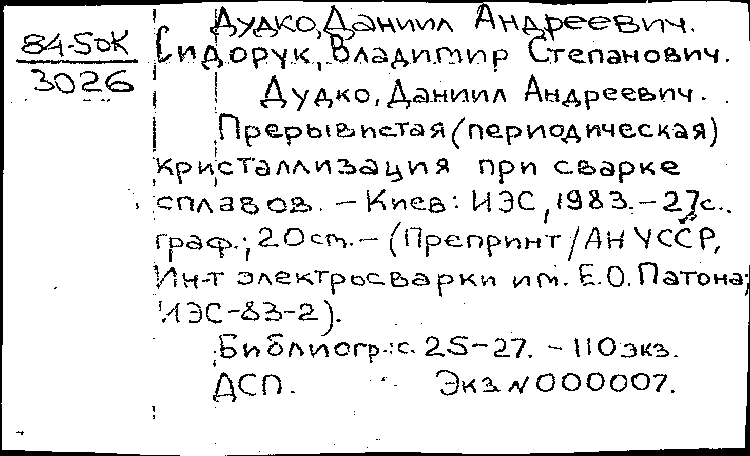 Дудко, Даниил Андреевич.
84-5ок
3026
Сидорук, Владимир Степанович.
Дудко, Даниил Андреевич.
Прерывистая (периодическая)
кристаллизация при сварке
сплавов. - Киев: ИЭС, 1983. - 27с.
граф.; 20 cm. - (Препринт / АН УССР,
Ин-т электросварки им. Е.О. Патона;
ИЭС-83-2).
Библиогр.: с. 25-27. - 110 экз.
ДСП. Экз N 000007.